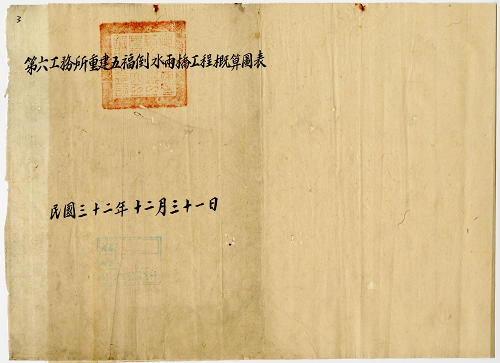 3
第六工務所重建五福倒水兩橋工程概算圖表
民國三十二年十二月三十一日